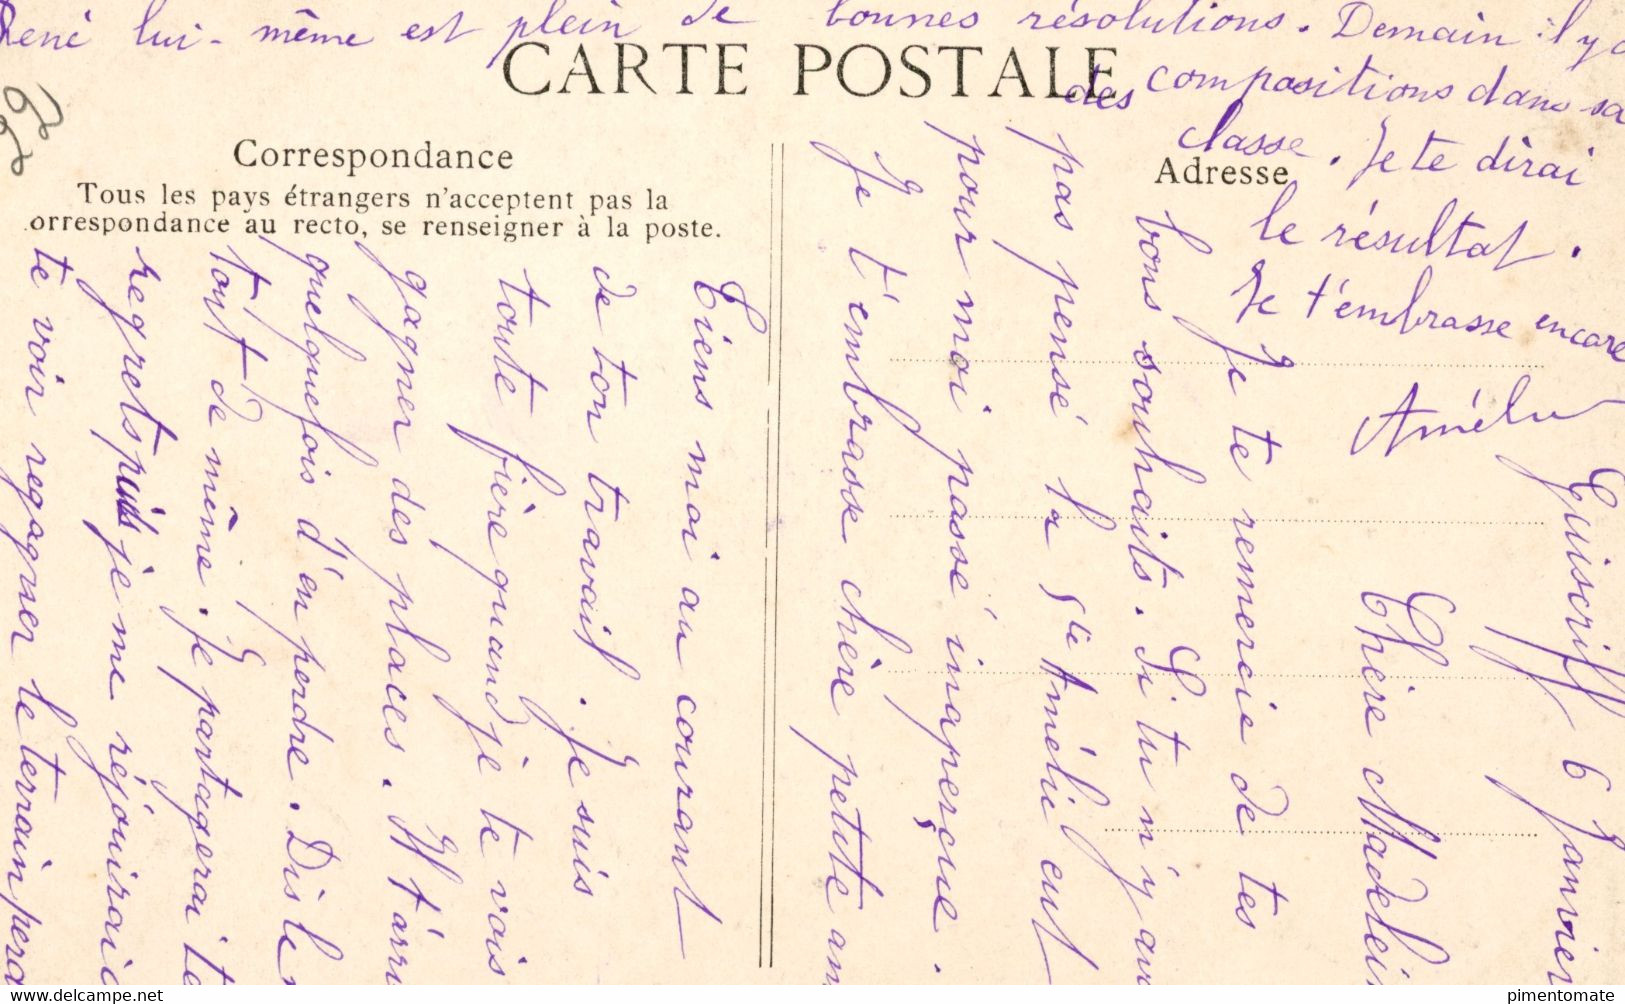 Guiscriff 6 Janvier
Chère Madelei
Je te remercie de tes
bons souhaits. Si tu n'y ava
pas pensé la Ste Amélie eut
pour moi passé inaperçue.
Je t'embrasse chère petite am
Tiens moi au courant
de ton travail. Je suis
toute fière quand je te vois
gagner des places. Il t'arri
quelquefois d'en perdre. Dis le
tout de même. Je partagerai te
regrets puis je me réjouirai d
te voir regagner le terrain perd
René lui-même est plein de bonnes résolutions. Demain il y a
des compositions dans sa
classe. Je te dirai
le résultat.
Je t'embrasse encore
Amélie
CARTE POSTALE
Correspondance
Tous les pays étrangers n'acceptent pas la
orrespondance au recto, se renseigner à la poste.
Adresse
delcampe.net
pimentomate